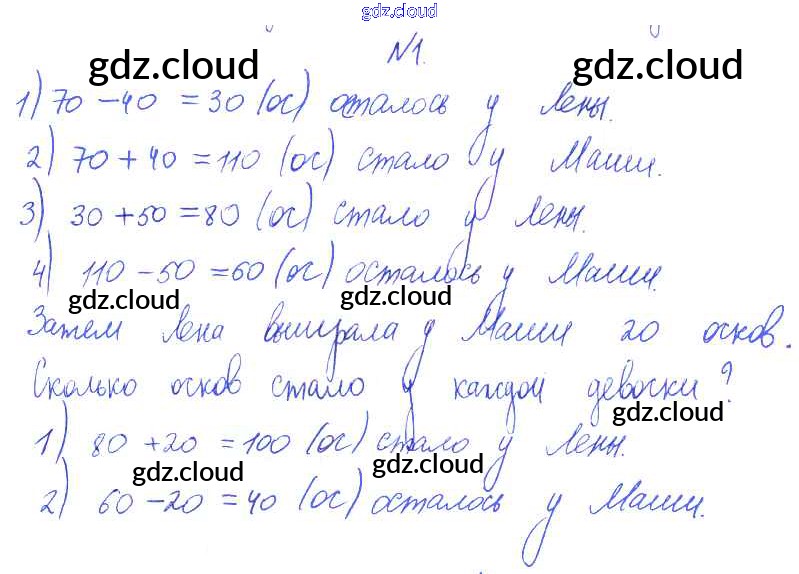 gdz.cloud
№1.
gdz.cloud gdz.cloud
1) 70 - 40 = 30 (ос) осталось у Лены.
2) 70 + 40 = 110 (ос) стало у Маши.
3) 30 + 50 = 80 (ос) стало у Лены.
4) 110 - 50 = 60 (ос) осталось у Маши.
gdz.cloud gdz.cloud
Затем Лена выиграла у Маши 20 осков.
Сколько осков стало у каждой девоски?
gdz.cloud
1) 80 + 20 = 100 (ос) стало у Лены.
gdz.cloud gdz.cloud
2) 60 - 20 = 40 (ос) осталось у Маши.